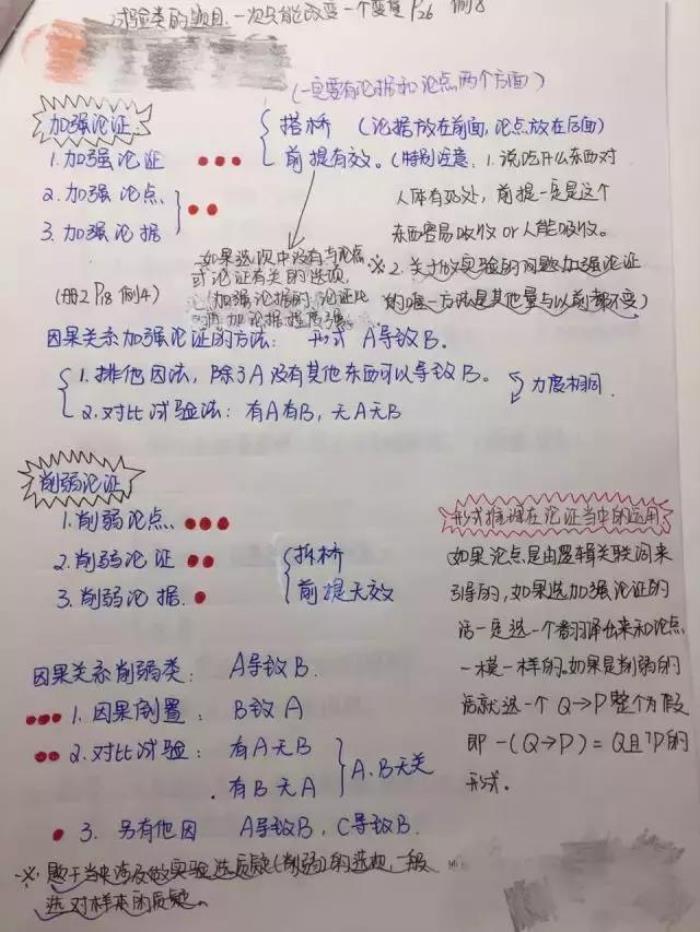 试验类的题目.一次只能改变一个变量 P26 例8
(一定要有论据和论点两个方面)
加强论证
搭桥 (论据放在前面,论点放在后面)
1.加强论证
前提有效。(特别注意.1.说吃什么东西对
人体有好处,前提一定是这个
东西容易吸收or人能吸收。
2.加强论点.
3.加强论据
如果选项中没有与论点
或论证有关的选项,
加强论据的论证比
加论据程度强。
※2.关于做实验的问题加强论证
的唯一方法是其他量与以前都不变)
(册2 P18 例4)
因果关系加强论证的方法: 形式 A导致B.
1.排他因法,除了A没有其他东西可以导致B。
力度相同.
2.对比试验法:有A有B,无A无B
削弱论证
1.削弱论点.
2.削弱论证
拆桥
3.削弱论据.
前提无效
形式推理在论证当中的运用
如果论点是由逻辑关联词来
引导的,如果选加强论证的
话一定选一个翻译出来和论点
一模一样的.如果是削弱的
话就选一个Q→P整个为假
即 ¬(Q→P)=Q且¬P的
形式.
因果关系削弱类: A导致B.
1.因果倒置: B致A
2.对比试验: 有A无B
有B无A
A.B无关
3.另有他因 A导致B,C导致B.
※.题干当中涉及做实验选质疑(削弱)的选项,一般
选对样本的质疑。